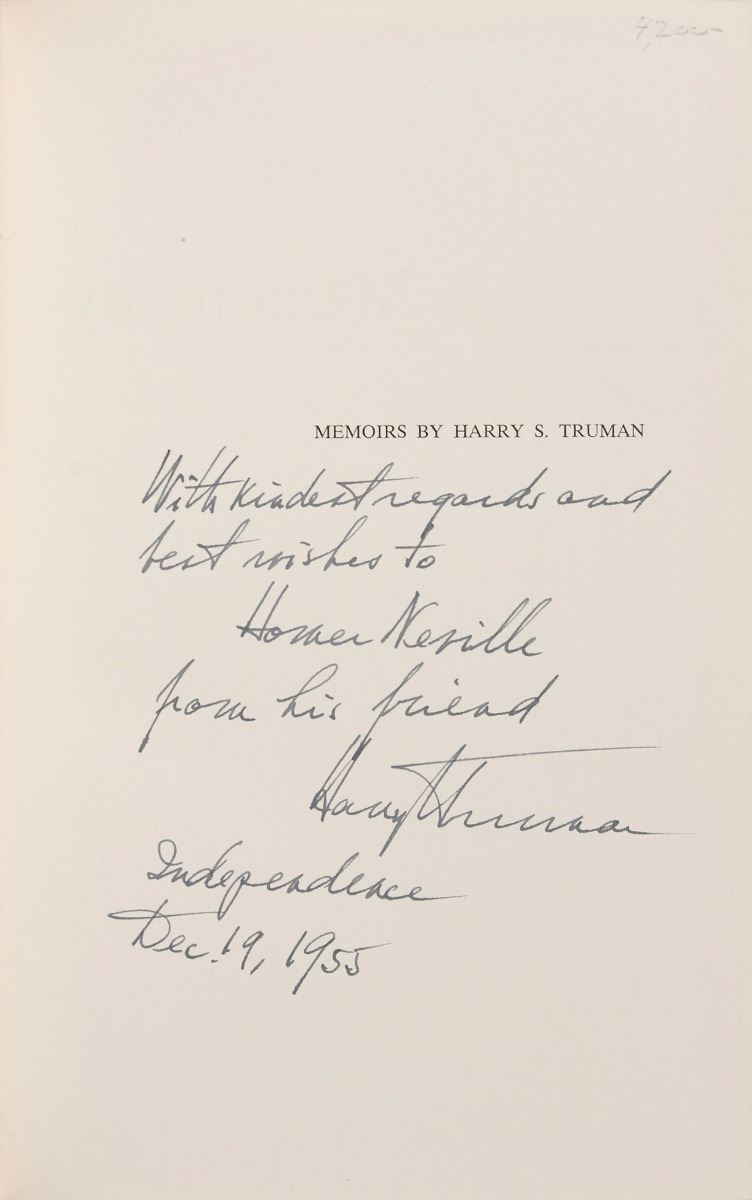 4,200-
MEMOIRS BY HARRY S. TRUMAN
With kindest regards and
best wishes to
Homer Neville
from his friend
Harry Truman
Independence
Dec. 19, 1955